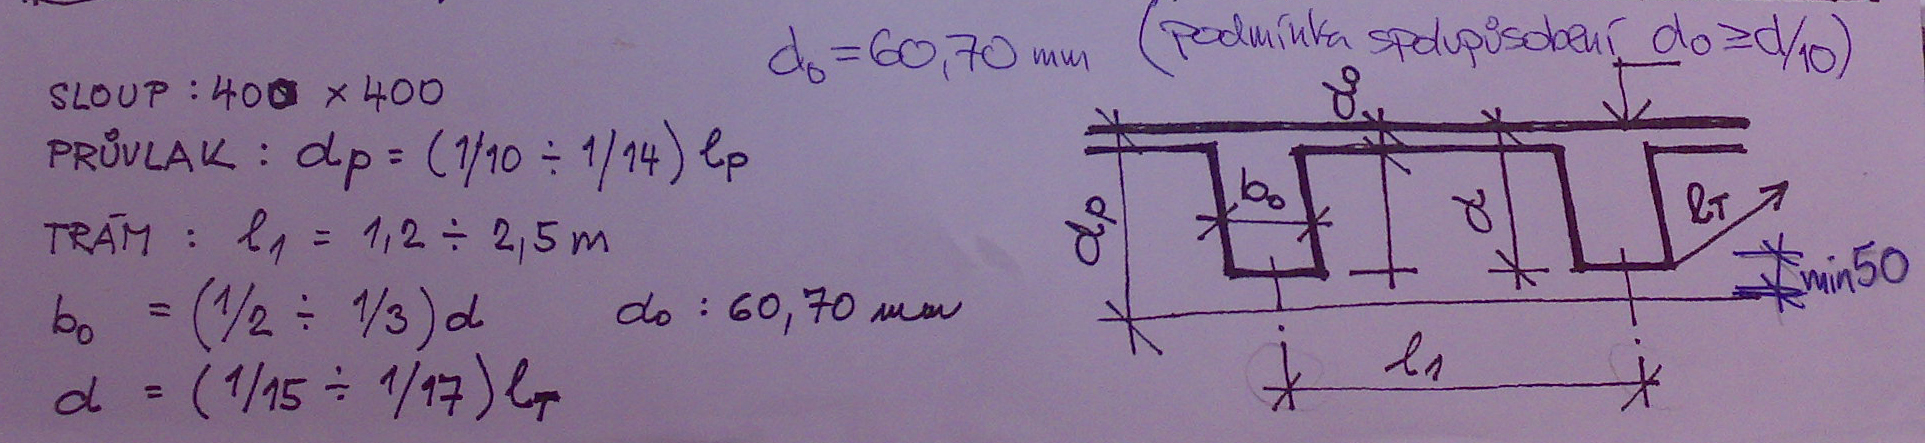 d₀ = 60,70 mm (podmínka spolupůsobení d₀ ≥ d/10)
SLOUP : 400 × 400
PRŮVLAK : dp = (1/10 ÷ 1/14) lp
TRÁM : l₁ = 1,2 ÷ 2,5 m
b₀ = (1/2 ÷ 1/3) d d₀ : 60,70 mm
d = (1/15 ÷ 1/17) lT
d₀
dp
b₀
d
lT
min 50
l₁